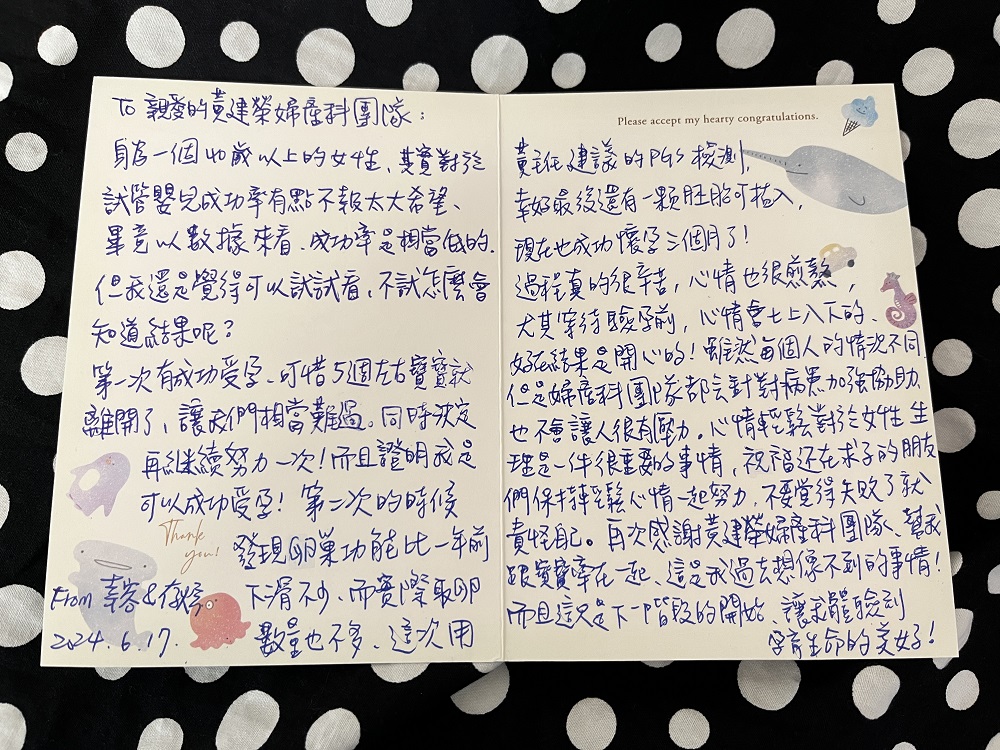 To 親愛的黃建榮婦產科團隊:
身為一個40歲以上的女性、其實對於
試管嬰兒成功率有點不報太大希望、
畢竟以數據來看、成功率是相當低的.
但我還是覺得可以試試看、不試怎麼會
知道結果呢?
第一次有成功受孕、可惜5週左右寶寶就
離開了、讓我們相當難過。同時決定
再繼續努力一次!而且證明我是
可以成功受孕! 第二次的時候
Thank you!
發現卵巢功能比一年前
下滑不少、而實際取卵
數量也不多、這次用
From
2024.6.17.
Please accept my hearty congratulations.
黃主任建議的PGS檢測,
幸好最後還有一顆胚胎可植入,
現在也成功懷孕三個月了!
過程真的很辛苦, 心情也很煎熬,
尤其等待驗孕前, 心情會七上八下的、
好在結果是開心的! 雖然每個人的情況不同
但是婦產科團隊都會針對病患加強協助、
也不會讓人很有壓力。心情輕鬆對於女性生
理是一件很重要的事情, 祝福還在求子的朋友
們保持輕鬆心情一起努力、不要覺得失敗了就
責怪自己。再次感謝黃建榮婦產科團隊、幫我
跟寶寶牽在一起、這是我過去想像不到的事情!
而且這只是下一階段的開始、讓我體驗到
孕育生命的美好!